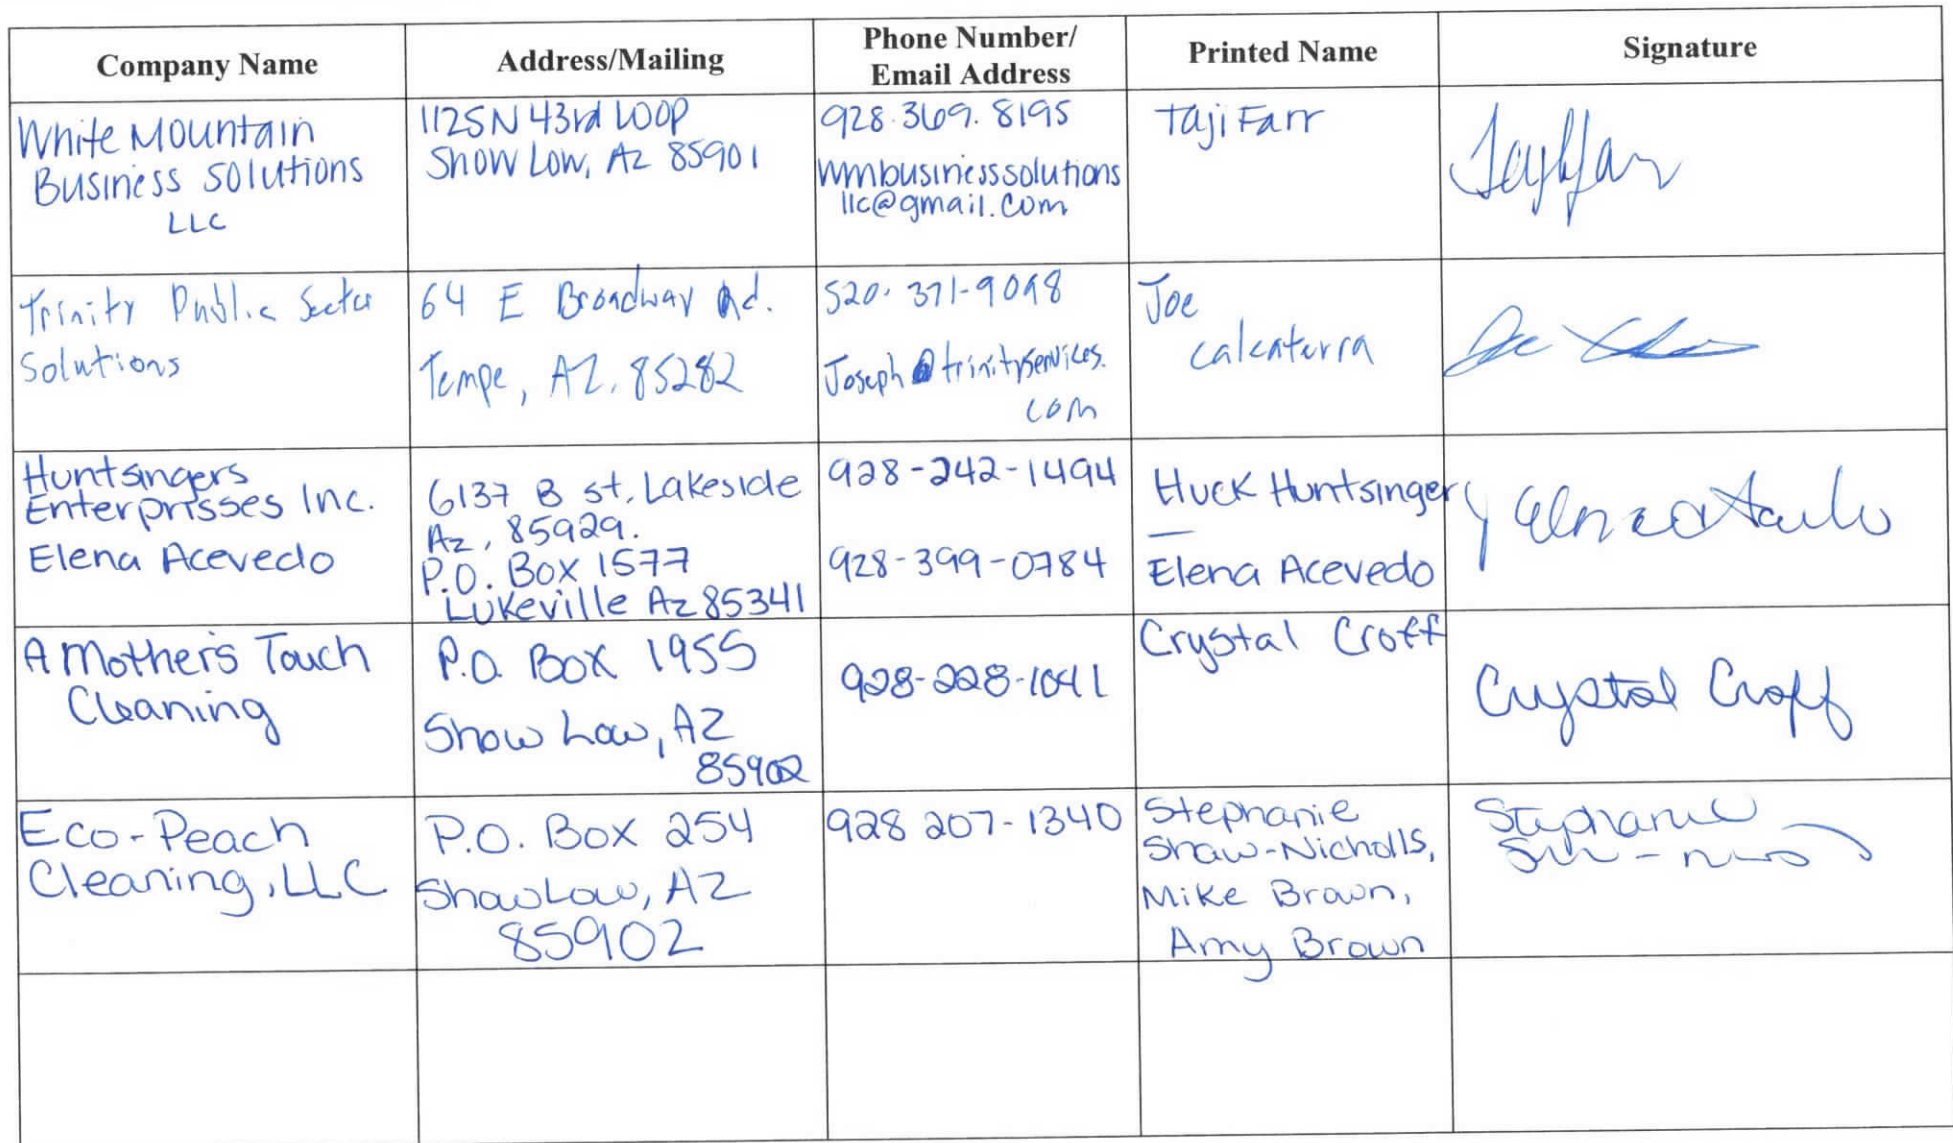 Company Name
Address/Mailing
Phone Number/
Email Address
Printed Name
Signature
White Mountain
Business Solutions
LLC
1125 N 43rd Loop
Show Low, Az 85901
928.369.8195
wmbusinesssolutions
llc@gmail.com
Taji Farr
Trinity Public Sector
Solutions
64 E Broadway Rd.
Tempe, AZ. 85282
520. 371-9098
Joseph@trinityservices.
com
Joe
Calcaterra
Huntsingers
Enterprisses Inc.
Elena Acevedo
6137 B st. Lakeside
Az, 85929.
P.O. Box 1577
Lukeville Az 85341
928-242-1494
928-399-0784
Huck Huntsinger
Elena Acevedo
A Mother's Touch
Cleaning
P.O. Box 1955
Show Low, AZ
85902
928-228-1041
Crystal Croff
Crystal Croff
Eco-Peach
Cleaning, LLC
P.O. Box 254
Show Low, AZ
85902
928 207-1340
Stephanie
Shaw-Nicholls,
Mike Brown,
Amy Brown
Stephanie